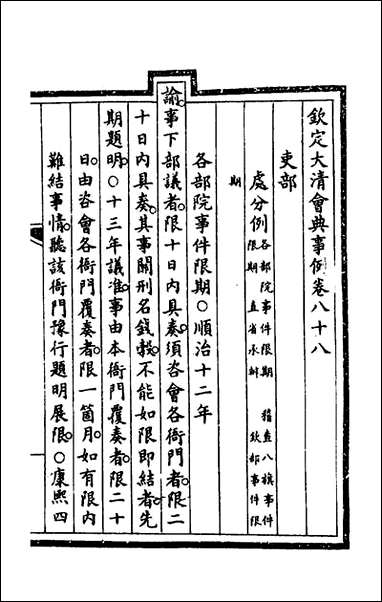 欽定大清會典事例卷八十八
吏部
處分例各部院事件限期 稽查八旗事件限期 直省承辦 欽部事件限
期
各部院事件限期○順治十二年
諭事下部議者限十日內具奏須咨會各衙門者限二
十日內具奏其事關刑名錢穀不能如限即結者先
期題明○十三年議准事由本衙門覆奏者限二十
日由咨會各衙門覆奏者限一箇月如有限內
難結事情聽該衙門豫行題明展限○康熙四